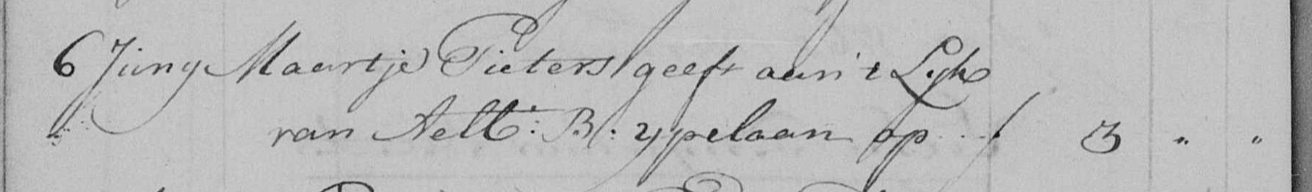 6 Juny Maartje Pieters geeft aan 't Lijk
van Aelt: B: ypelaan op f 3 " "